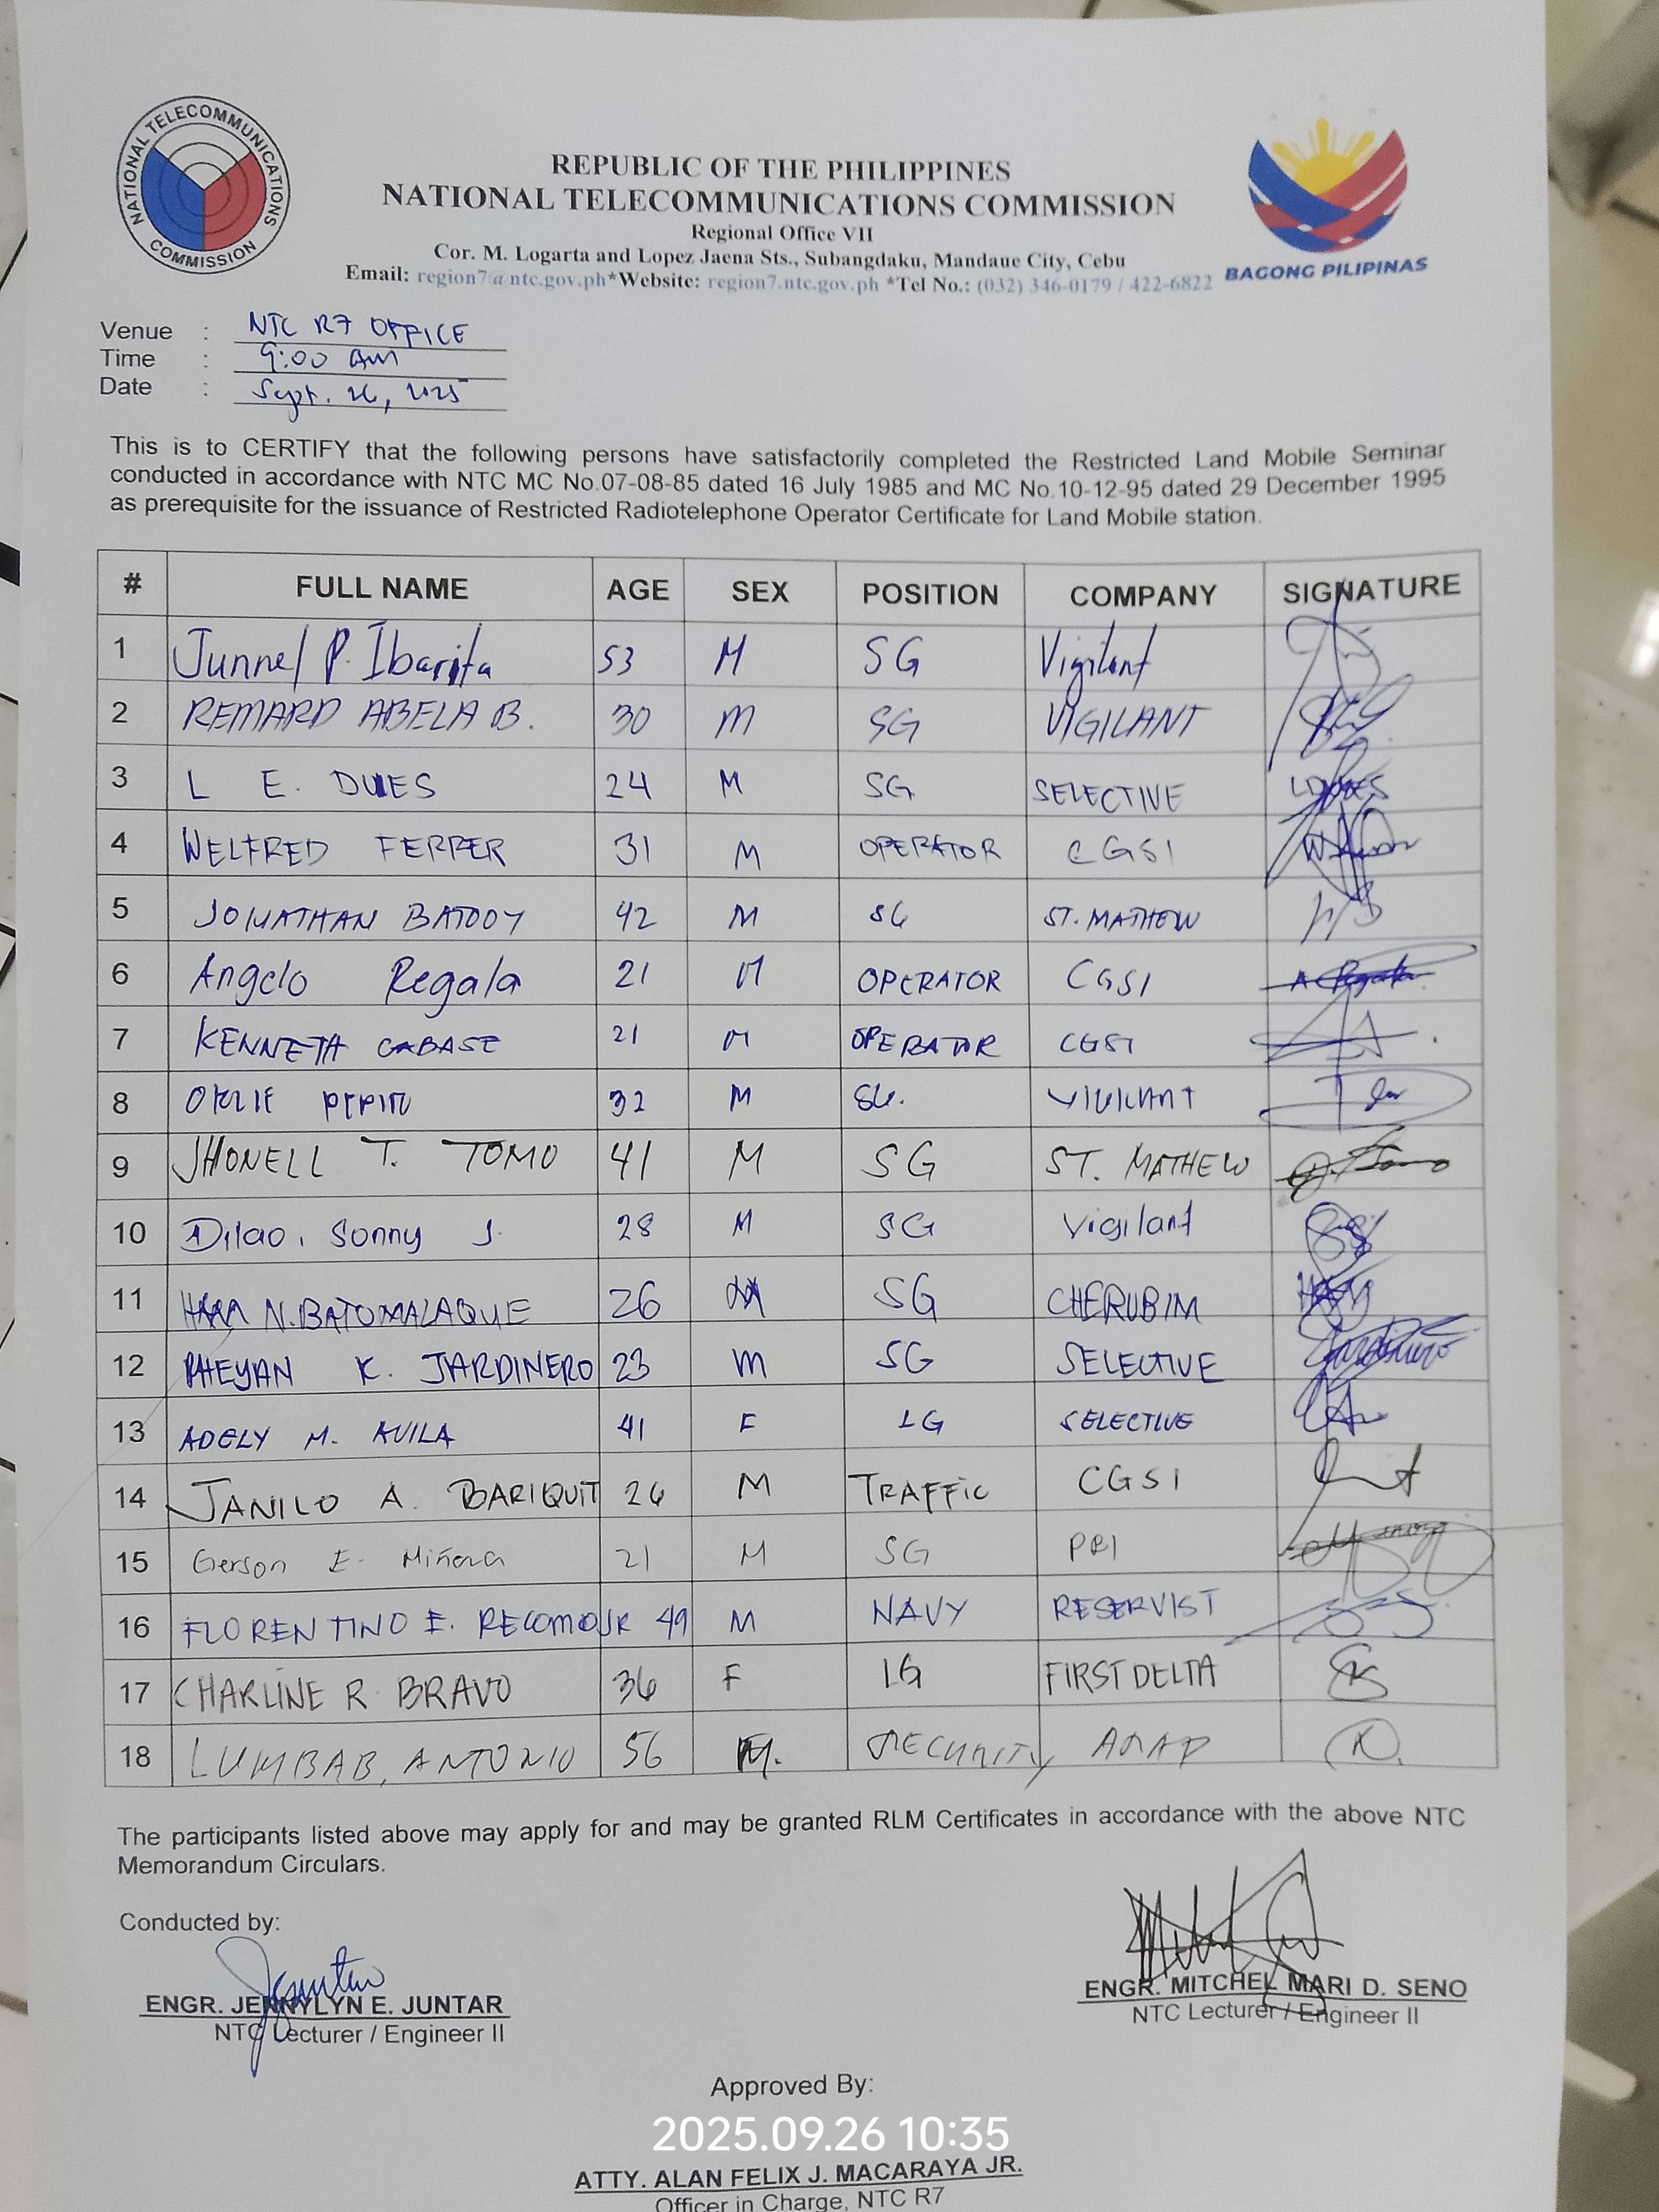 NATIONAL TELECOMMUNICATIONS COMMISSION
REPUBLIC OF THE PHILIPPINES
NATIONAL TELECOMMUNICATIONS COMMISSION
Regional Office VII
Cor. M. Logarta and Lopez Jaena Sts., Subangdaku, Mandaue City, Cebu
Email: region7@ntc.gov.ph*Website: region7.ntc.gov.ph *Tel No.: (032) 346-0179 / 422-6822
BAGONG PILIPINAS
Venue : NTC R7 OFFICE
Time : 9:00 AM
Date : Sept. 26, 2025
This is to CERTIFY that the following persons have satisfactorily completed the Restricted Land Mobile Seminar
conducted in accordance with NTC MC No.07-08-85 dated 16 July 1985 and MC No.10-12-95 dated 29 December 1995
as prerequisite for the issuance of Restricted Radiotelephone Operator Certificate for Land Mobile station.
# FULL NAME AGE SEX POSITION COMPANY SIGNATURE
1 Junnel P. Ibarita 53 M SG Vigilant
2 REMARD ABELA B. 30 M SG VIGILANT
3 L E. 24 M SG SELECTIVE
4 WELFRED FERRER 31 M OPERATOR CGSI
5 JONATHAN 42 M SG ST. MATHEW
6 Angelo Regala 21 M OPERATOR CGSI
7 KENNETH CABASE 21 M OPERATOR CGSI
8 PEPITO 32 M SG. VIGILANT
9 JHONELL T. TOMO 41 M SG ST. MATHEW
10 Dilao, Sonny J. 28 M SG Vigilant
11 N. BATOMALAQUE 26 M SG CHERUBIM
12 RHEYAN K. JARDINERO 23 M SG SELECTIVE
13 ADELY M. AVILA 41 F LG SELECTIVE
14 JANILO A. BARIQUIT 26 M TRAFFIC CGSI
15 Gerson E. 21 M SG
16 FLORENTINO E. RECOMO JR 49 M NAVY RESERVIST
17 CHARLINE R. BRAVO 36 F LG FIRST DELTA
18 LUMBAB, ANTONIO 56 M. SECURITY
The participants listed above may apply for and may be granted RLM Certificates in accordance with the above NTC
Memorandum Circulars.
Conducted by:
ENGR. JENNYLYN E. JUNTAR
NTC Lecturer / Engineer II
ENGR. MITCHEL MARI D. SENO
NTC Lecturer / Engineer II
Approved By:
2025.09.26 10:35
ATTY. ALAN FELIX J. MACARAYA JR.
Officer in Charge, NTC R7